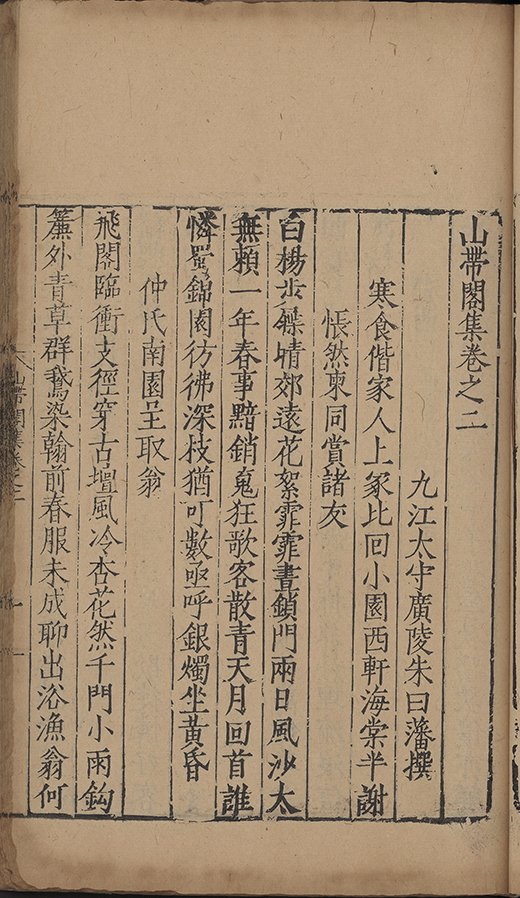 山帶閣集卷之二
九江太守廣陵朱曰藩撰
寒食偕家人上冢比回小園西軒海棠半謝
悵然柬同賞諸友
白楊步屧晴郊遠花絮霏霏晝鎖門兩日風沙太
無賴一年春事黯銷䰟狂歌客散青天月回首誰
憐蜀錦園彷彿深枝猶可數亟呼銀燭坐黃昏
仲氏南園呈取翁
飛閣臨衝支徑穿古壇風冷杏花然千門小雨鈎
簾外青草群鵞染翰前春服未成聊出浴漁翁何
山帶閣集卷之二